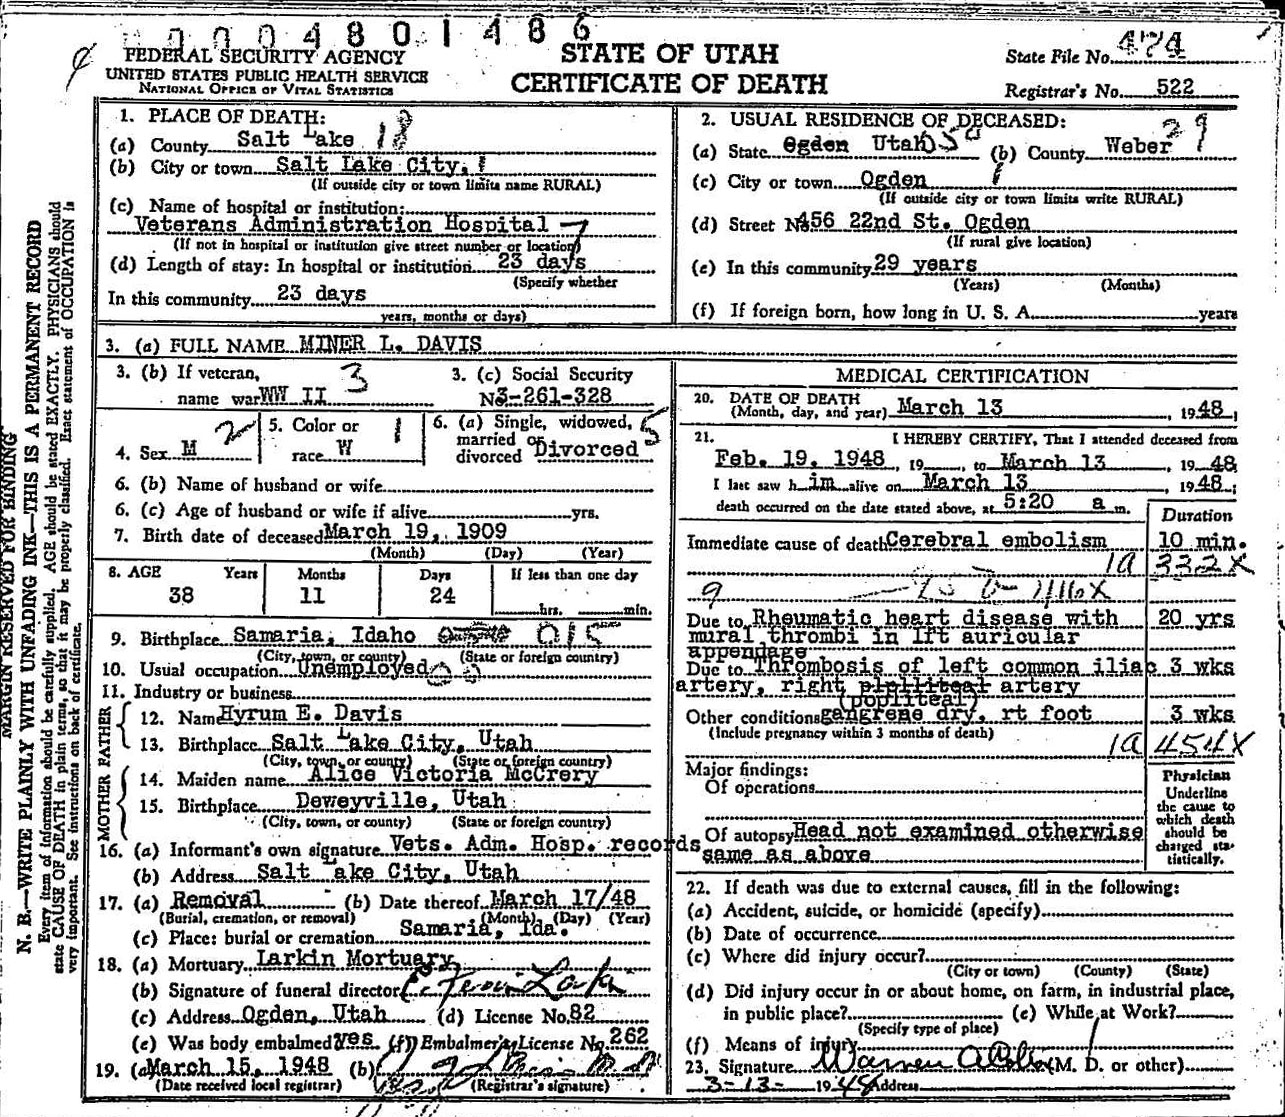 0004801486
FEDERAL SECURITY AGENCY
UNITED STATES PUBLIC HEALTH SERVICE
NATIONAL OFFICE OF VITAL STATISTICS
STATE OF UTAH
CERTIFICATE OF DEATH
State File No. 474
Registrar's No. 522
MARGIN RESERVED FOR BINDING
N. B.—WRITE PLAINLY WITH UNFADING INK—THIS IS A PERMANENT RECORD
Every item of information should be carefully supplied. AGE should be stated EXACTLY. PHYSICIANS should
state CAUSE OF DEATH in plain terms, so that it may be properly classified. Exact statement of OCCUPATION is
very important. See instructions on back of certificate.
1. PLACE OF DEATH:
(a) County Salt Lake 18
(b) City or town Salt Lake City, 1
(If outside city or town limits name RURAL)
(c) Name of hospital or institution:
Veterans Administration Hospital 7
(If not in hospital or institution give street number or location)
(d) Length of stay: In hospital or institution 23 days
(Specify whether
In this community 23 days
years, months or days)
2. USUAL RESIDENCE OF DECEASED:
(a) State Ogden Utah (b) County Weber 29
(c) City or town Ogden 1
(If outside city or town limits write RURAL)
(d) Street No 456 22nd St. Ogden
(If rural give location)
(e) In this community 29 years
(Years) (Months)
(f) If foreign born, how long in U. S. A. years
3. (a) FULL NAME MINER L. DAVIS
3. (b) If veteran, 3
name war WW II
3. (c) Social Security
N3-261-328
4. Sex M 2
5. Color or
race W 1
6. (a) Single, widowed,
married or
divorced Divorced 5
6. (b) Name of husband or wife
6. (c) Age of husband or wife if alive yrs.
7. Birth date of deceased March 19, 1909
(Month) (Day) (Year)
8. AGE Years Months Days If less than one day
38 11 24 hrs. min.
9. Birthplace Samaria, Idaho 015
(City, town, or county) (State or foreign country)
10. Usual occupation Unemployed
11. Industry or business
FATHER
12. Name Hyrum E. Davis
13. Birthplace Salt Lake City, Utah
(City, town, or county) (State or foreign country)
MOTHER
14. Maiden name Alice Victoria McCrery
15. Birthplace Deweyville, Utah
(City, town, or county) (State or foreign country)
16. (a) Informant's own signature Vets. Adm. Hosp. records
(b) Address Salt Lake City, Utah
17. (a) Removal (b) Date thereof March 17/48
(Burial, cremation, or removal) (Month) (Day) (Year)
(c) Place: burial or cremation Samaria, Ida.
18. (a) Mortuary Larkin Mortuary
(b) Signature of funeral director Larkin
(c) Address Ogden, Utah (d) License No. 82
(e) Was body embalmed yes (f) Embalmer's License No 262
19. (a) March 15, 1948 (b)
(Date received local registrar) (Registrar's signature)
MEDICAL CERTIFICATION
20. DATE OF DEATH
(Month, day, and year) March 13, 1948;
21. I HEREBY CERTIFY, That I attended deceased from
Feb. 19, 1948, 19 , to March 13, 1948
I last saw h im alive on March 13, 1948;
death occurred on the date stated above, at 5:20 a m.
Duration
Immediate cause of death Cerebral embolism 10 min.
1a 332X
9 416X
Due to Rheumatic heart disease with 20 yrs
mural thrombi in lft auricular
appendage
Due to Thrombosis of left common iliac 3 wks
artery, right artery
(popliteal)
Other conditions gangrene dry, rt foot 3 wks
(Include pregnancy within 3 months of death)
1a 454X
Major findings:
Of operations
Of autopsy Head not examined otherwise
same as above
Physician
Underline
the cause to
which death
should be
charged sta-
tistically.
22. If death was due to external causes, fill in the following:
(a) Accident, suicide, or homicide (specify)
(b) Date of occurrence
(c) Where did injury occur?
(City or town) (County) (State)
(d) Did injury occur in or about home, on farm, in industrial place,
in public place? (e) While at Work?
(Specify type of place)
(f) Means of injury
23. Signature Warren (M. D. or other)
3-13- 1948 Address